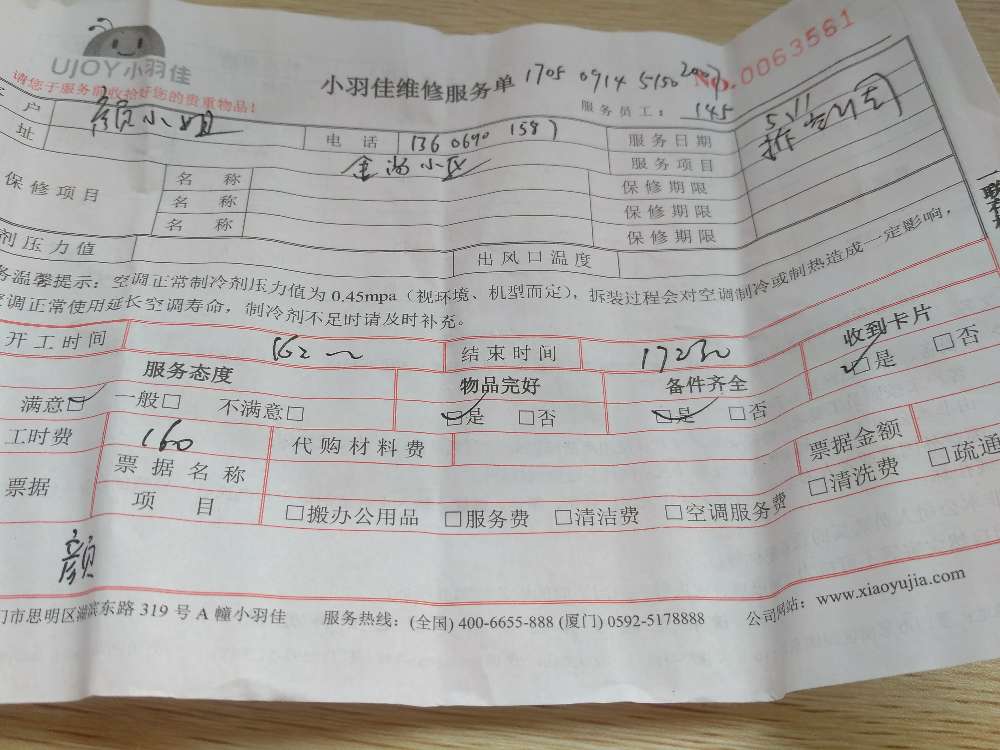 UJOY小羽佳
请您于服务前收拾好您的贵重物品!
小羽佳维修服务单 1705 0914 5150 2007
No.0063561
服务员工: 145
户 颜小姐 电话 1360690 1587 服务日期 5.11
址 金尚小区 服务项目
保修项目 名称 保修期限
名称 保修期限
名称 保修期限
剂压力值 出风口温度
务温馨提示: 空调正常制冷剂压力值为 0.45mpa (视环境、机型而定), 拆装过程会对空调制冷或制热造成一定影响,
调正常使用延长空调寿命, 制冷剂不足时请及时补充。
开工时间 结束时间 收到卡片
服务态度 物品完好 备件齐全 □是 □否
满意□ 一般□ 不满意□ □是 □否 □是 □否
工时费 160 代购材料费 票据金额
票据 票据名称
项目 □搬办公用品 □服务费 □清洁费 □空调服务费 □清洗费 □疏通
颜
门市思明区湖滨东路 319 号 A 幢小羽佳 服务热线: (全国) 400-6655-888 (厦门) 0592-5178888 公司网站: www.xiaoyujia.com